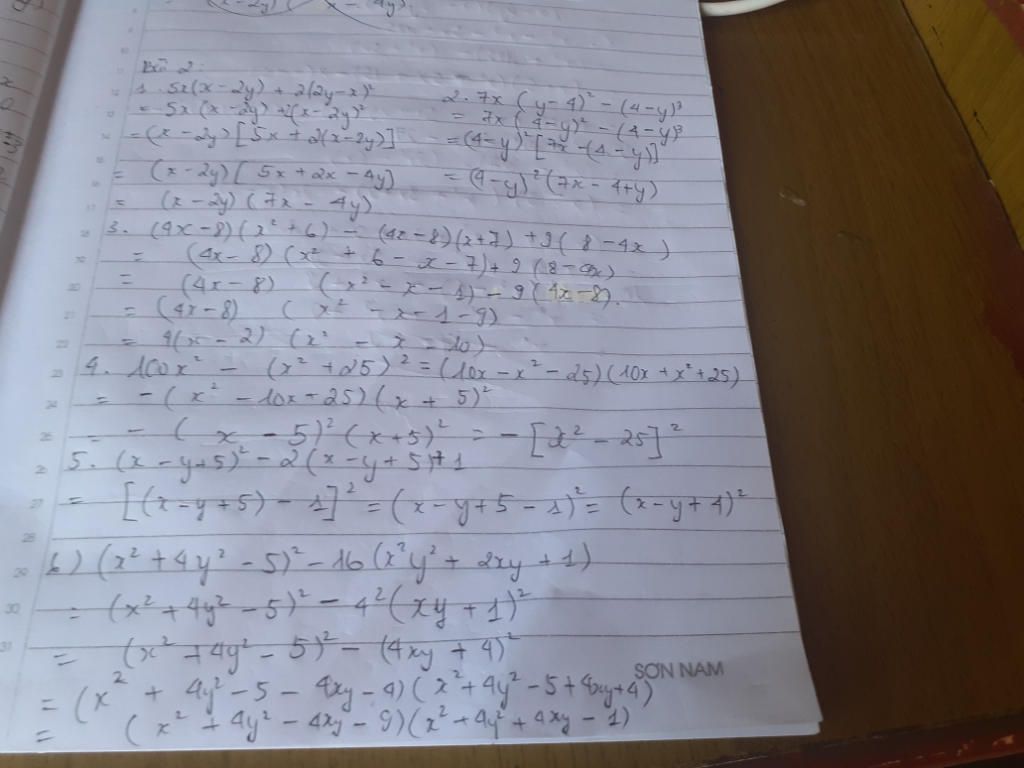 (x-2y) ( x-4y).
Bài 2:
1. 5x(x-2y) + 2(2y-x)²
2. 7x (y-4)² - (4-y)³
= 5x(x-2y)+2(x-2y)²
= 7x(4-y)² - (4-y)³
= (x-2y)[5x+2(x-2y)]
= (4-y)²[7x-(4-y)]
= (x-2y)[5x+2x-4y)
= (4-y)²(7x-4+y)
= (x-2y)(7x-4y)
3. (4x-8)(x²+6) - (4x-8)(x+7) + 9(8-4x)
= (4x-8)(x²+6-x-7)+9(8-4x)
= (4x-8) (x²-x-1)-9(4x-8).
= (4x-8) (x²-x-1-9)
= 4(x-2) (x²-x-10)
4. 100x² - (x²+25)² = (10x-x²-25)(10x+x²+25)
= -(x²-10x+25)(x+5)²
= -(x-5)²(x+5)² = -[x²-25]²
5. (x-y+5)²-2(x-y+5)+1
= [(x-y+5)-1]² = (x-y+5-1)² = (x-y+4)²
6) (x²+4y²-5)²-16(x²y²+2xy+1)
= (x²+4y²-5)²-4²(xy+1)²
= (x²+4y²-5)²-(4xy+4)²
SON NAM
= (x²+4y²-5-4xy-4)(x²+4y²-5+4xy+4)
= (x²+4y²-4xy-9)(x²+4y²+4xy-1)